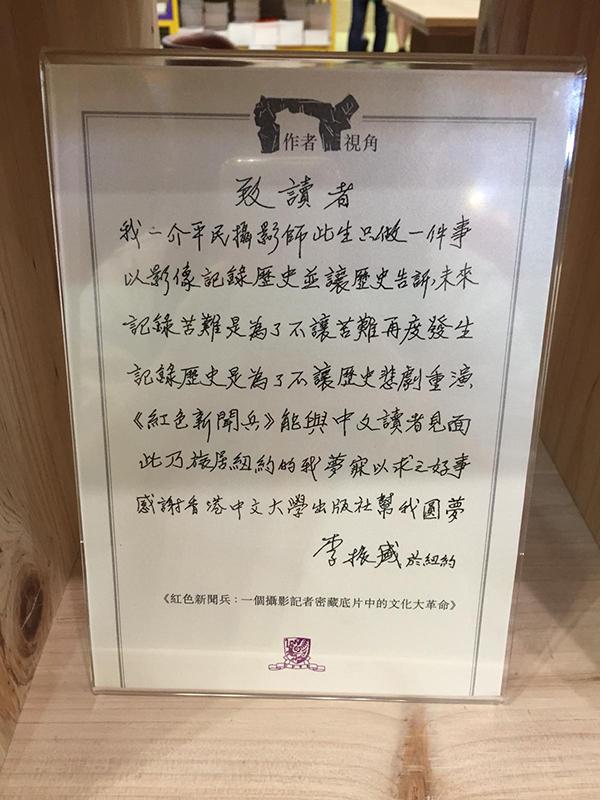 作者視角
致讀者
我一介平民攝影師此生只做一件事
以影像記錄歷史並讓歷史告訴未來
記錄苦難是為了不讓苦難再度發生
記錄歷史是為了不讓歷史悲劇重演
《紅色新聞兵》能與中文讀者見面
此乃旅居紐約的我夢寐以求之好事
感謝香港中文大學出版社幫我圓夢
李振盛 於紐約
《紅色新聞兵：一個攝影記者密藏底片中的文化大革命》